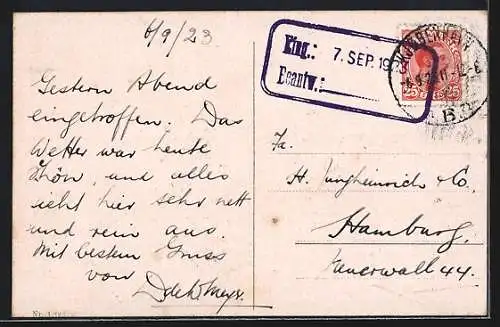 6/9/23
Gestern Abend
eingetroffen. Das
Wetter war heute
schön, und alles
sieht hier sehr nett
und rein aus.
Mit bestem Gruss
von
Eing.: 7. SEP. 19
Beantw.:
25 25
Fa.
H. Jungheinrich & Co.
Hamburg,
Neuerwall 44.